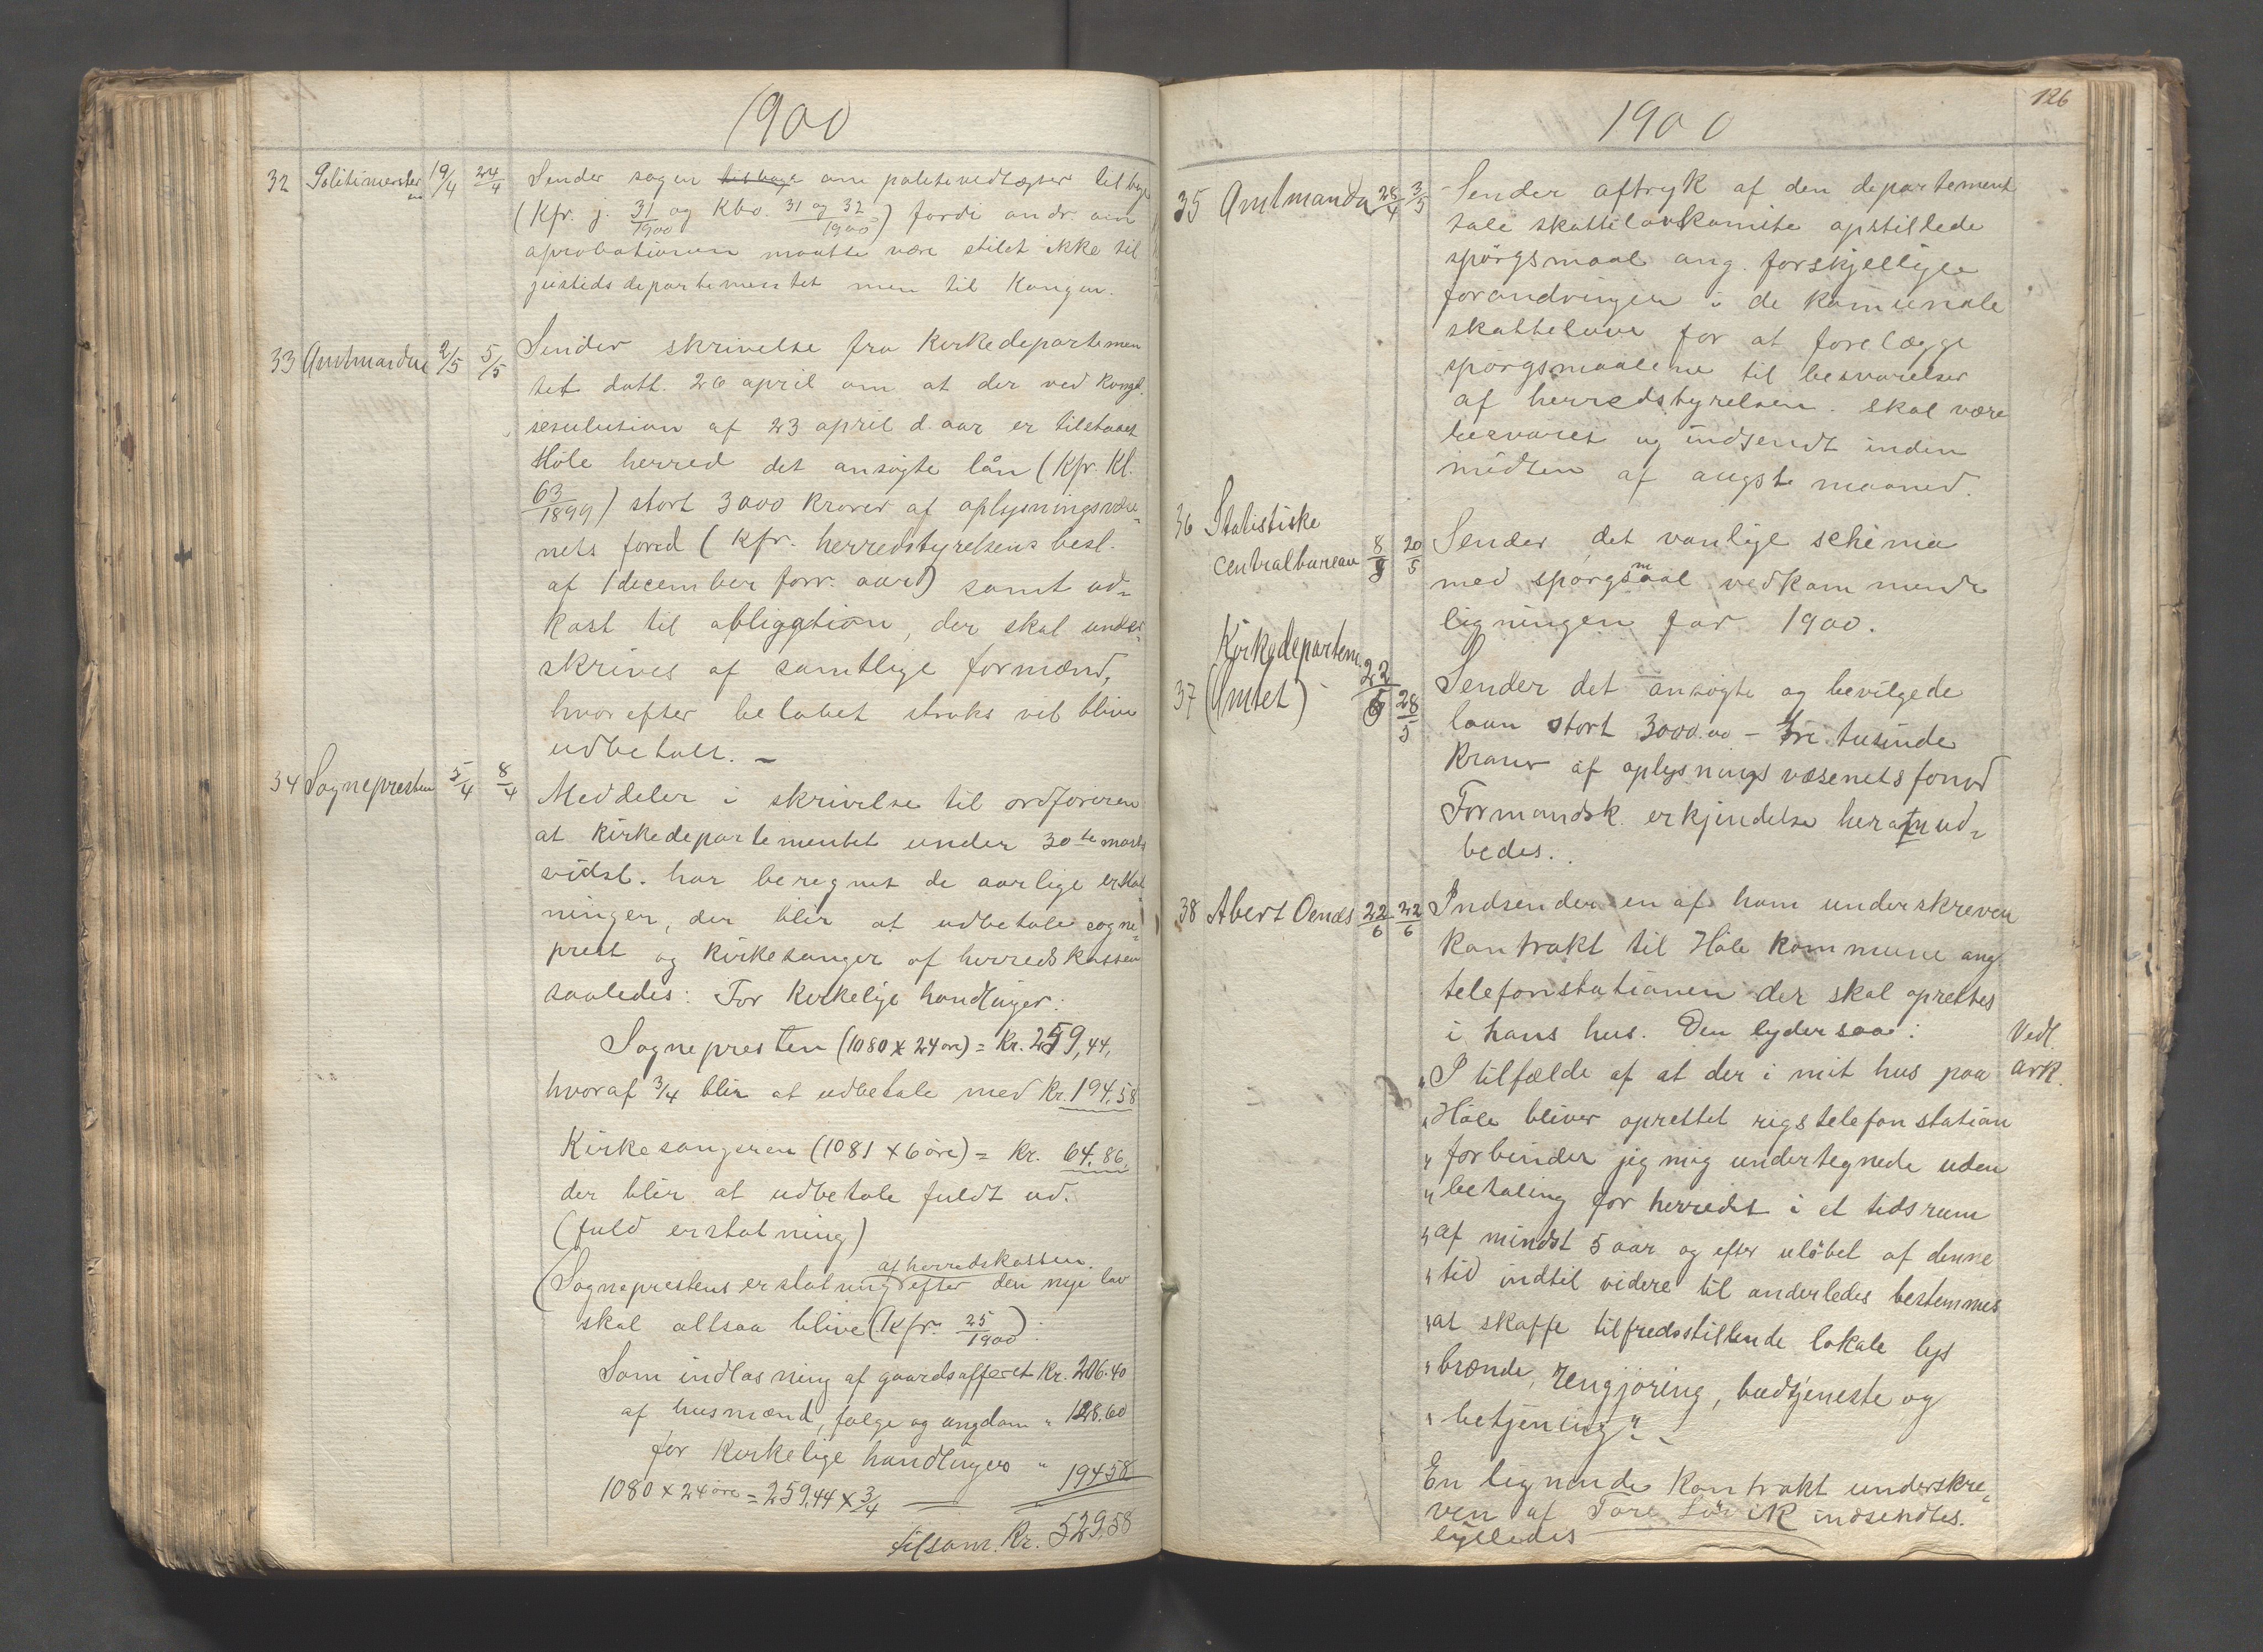 1900
32 Politimesteren 19/4 24/4 Sender sagen tilbage om politivedtægter tilbage
(Kfr. j. 31/1900 og Kbo. 31 og 32/1900) fordi andr. om
aprobationen maatte være stilet ikke til
justidsdepartementet men til Kongen.
33 Amtmanden 2/5 5/5 Sender skrivelse fra Kirkedepartemen
tet datt. 26 april om at der ved Kongl.
resulution af 23 april d. aar er tilstaaet
Höle herred det ansögte lån (Kfr. Kl.
63/1899) stort 3000 kroner af oplysningsvæse-
nets fond (Kfr. herredstyrelsens besl.
af 1 december forr. aar) samt ud-
kast til obligation, der skal under-
skrives af samtlige formænd,
hvorefter belöbet straks vil blive
udbetalt. –
34 Sognepresten 5/4 8/4 Meddeler i skrivelse til ordföreren
at kirkedepartementet under 30te marts
sidstl. har beregnet de aarlige erstat
ninger, der blir at udbetale sogne-
prest og kirkesanger af herredskassen
saaledes: For kirkelige handlinger:
Sognepresten (1080 x 24 öre) = Kr. 259,44,
hvoraf 3/4 blir at udbetale med Kr. 194,58
Kirkesangeren (1081 x 6 öre) = Kr. 64,86,
der blir at udbetale fuldt ud.
(fuld erstatning)
af herredskassen.
(Sogneprestens erstatning efter den nye lov
skal altsaa blive (Kfr. 25/1900):
Som indlösning af gaardsofferet Kr. 206.40
af husmænd, folge og ungdom " 128.60
for Kirkelige handlinger " 194.58
1080 x 24 öre = 259,44 x 3/4
tilsam. Kr. 529,58
126
1900
35 Amtmanden 28/4 3/5 Sender aftryk af den departement
tale skattelovkomite opstillede
spörgsmaal ang. forskjellige
forandringer i de kommunale
skattelove for at forelægge
spörgsmaalene til besvarelser
af herredstyrelsen. skal være
besvaret og indsendt inden
midten af augst maaned.
36 Statistiske
centralbureau 8/5 20/5 Sender det vanlige schema
med spörgsmaal vedkommende
ligningen for 1900.
Kirkedepartem.
37 (Amtet) 22/5 28/5 Sender det ansögte og bevilgede
laan stort 3000.00 – tre tusinde
kroner af oplysningsvæsenets fond
Formandsk. erkjendelse herom ud-
bedes.
38 Abert Oenæs 22/6 22/6 Indsender en af ham underskreven
kontrakt til Höle kommune ang.
telefonstationen der skal oprettes
i hans hus. Den lyder saa: Vedl.
"I tilfælde af at der i mit hus paa ark.
"Höle bliver oprettet rigstelefonstation
"forbinder jeg mig undertegnede uden
"betaling for herredet i et tidsrum
"af mindst 5 aar og efter ulöbet af denne
"tid indtil videre til anderledes bestemmes
"at skaffe tilfredsstillende lokale lys
"brænde, rengjöring, budtjeneste og
"betjening"
En lignende kontrakt underskre-
ven af Tore indsendtes.
ligeledes